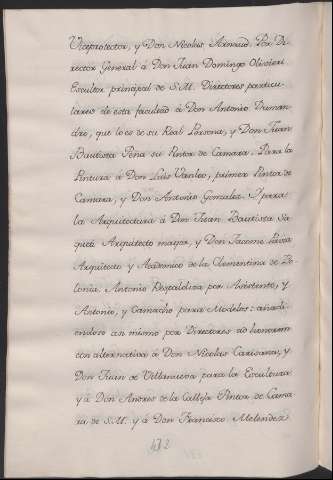 Viceprotector, y Don Nicolas Arnaud. Por Di-
rector General à Don Juan Domingo Olivieri
Escultor principal de S.M. Directores particu-
lares de esta facultad à Don Antonio Duman-
dre, que lo es de su Real Persona, y Don Juan
Bautista Peña su Pintor de Camara. Para la
Pintura à Don Luis Vanloo, primer Pintor de
Camara, y Don Antonio Gonzalez. Y para
la Arquitectura à Don Juan Bautista Sa-
queti Arquitecto mayor, y Don Jacome Pavia
Arquitecto y Academico de la Clementina de Bo-
lonia. Antonio por Asistente, y
Antonio, y Camacho para Modelos: añadi-
endose asi mismo por Directores ad honorem
con alternativa à Don Nicolas Carisana, y
Don Juan de Villanueva para la Escultura
y à Don Andres de la Calleja Pintor de Cama-
ra de S.M. y à Don Francisco Melendez
472